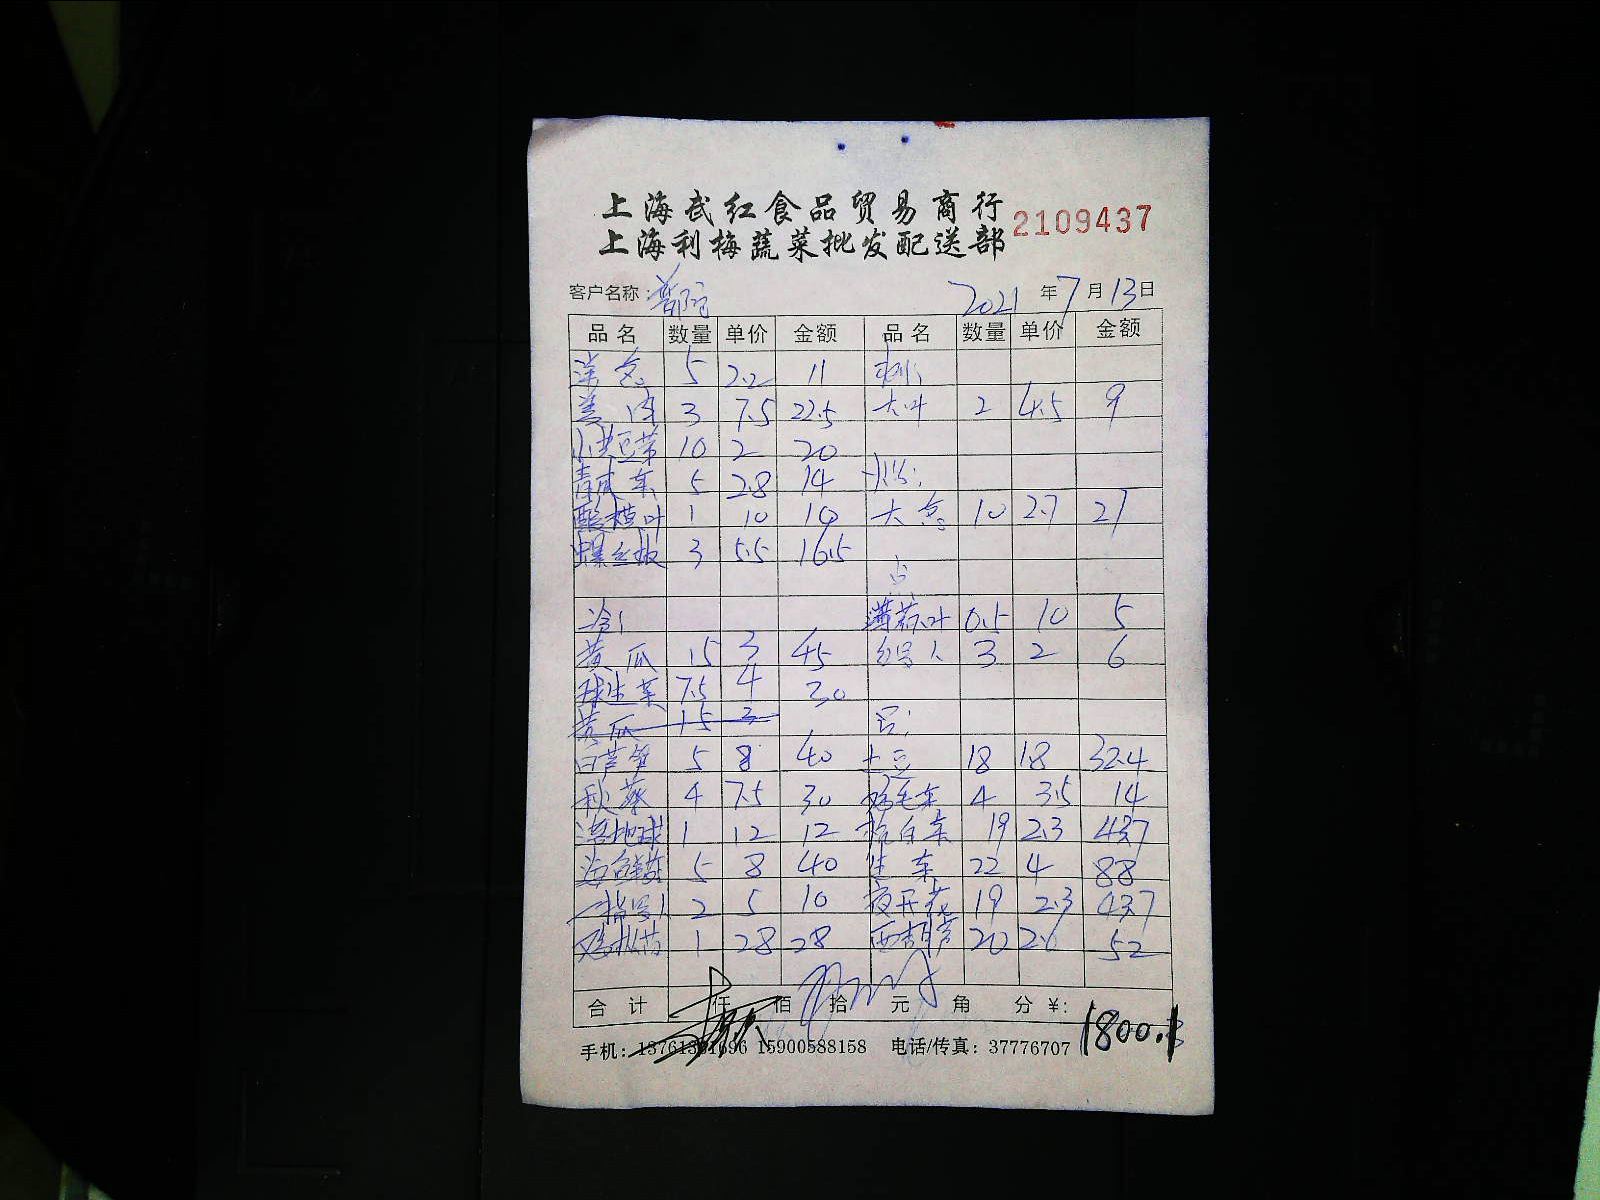 上海武红食品贸易商行
上海利梅蔬菜批发配送部 2109437
客户名称: 2021 年 7 月 13 日
品名 数量 单价 金额 品名 数量 单价 金额
洋 5 2.2 11
3 7.5 22.5 大叶 2 4.5 9
小黄豆芽 10 2 20
青 5 2.8 14
酸模叶 1 10 10 大 10 2.7 27
螺丝椒 3 5.5 16.5
冷: 薄荷叶 0.5 10 5
黄瓜 15 3 45 3 2 6
球生菜 7.5 4 30
黄瓜 15 3
白芦笋 5 8 40 土豆 18 1.8 32.4
秋葵 4 7.5 30 鸡毛菜 4 3.5 14
1 12 12 杭白菜 19 2.3 43.7
海鲜菇 5 8 40 生菜 22 4 88
2 5 10 夜开花 19 2.3 43.7
鸡枞菌 1 28 28 西葫芦 20 2.6 52
合计 仟 佰 拾 元 角 分 ¥: 1800.1
手机: 15900588158 电话/传真: 37776707